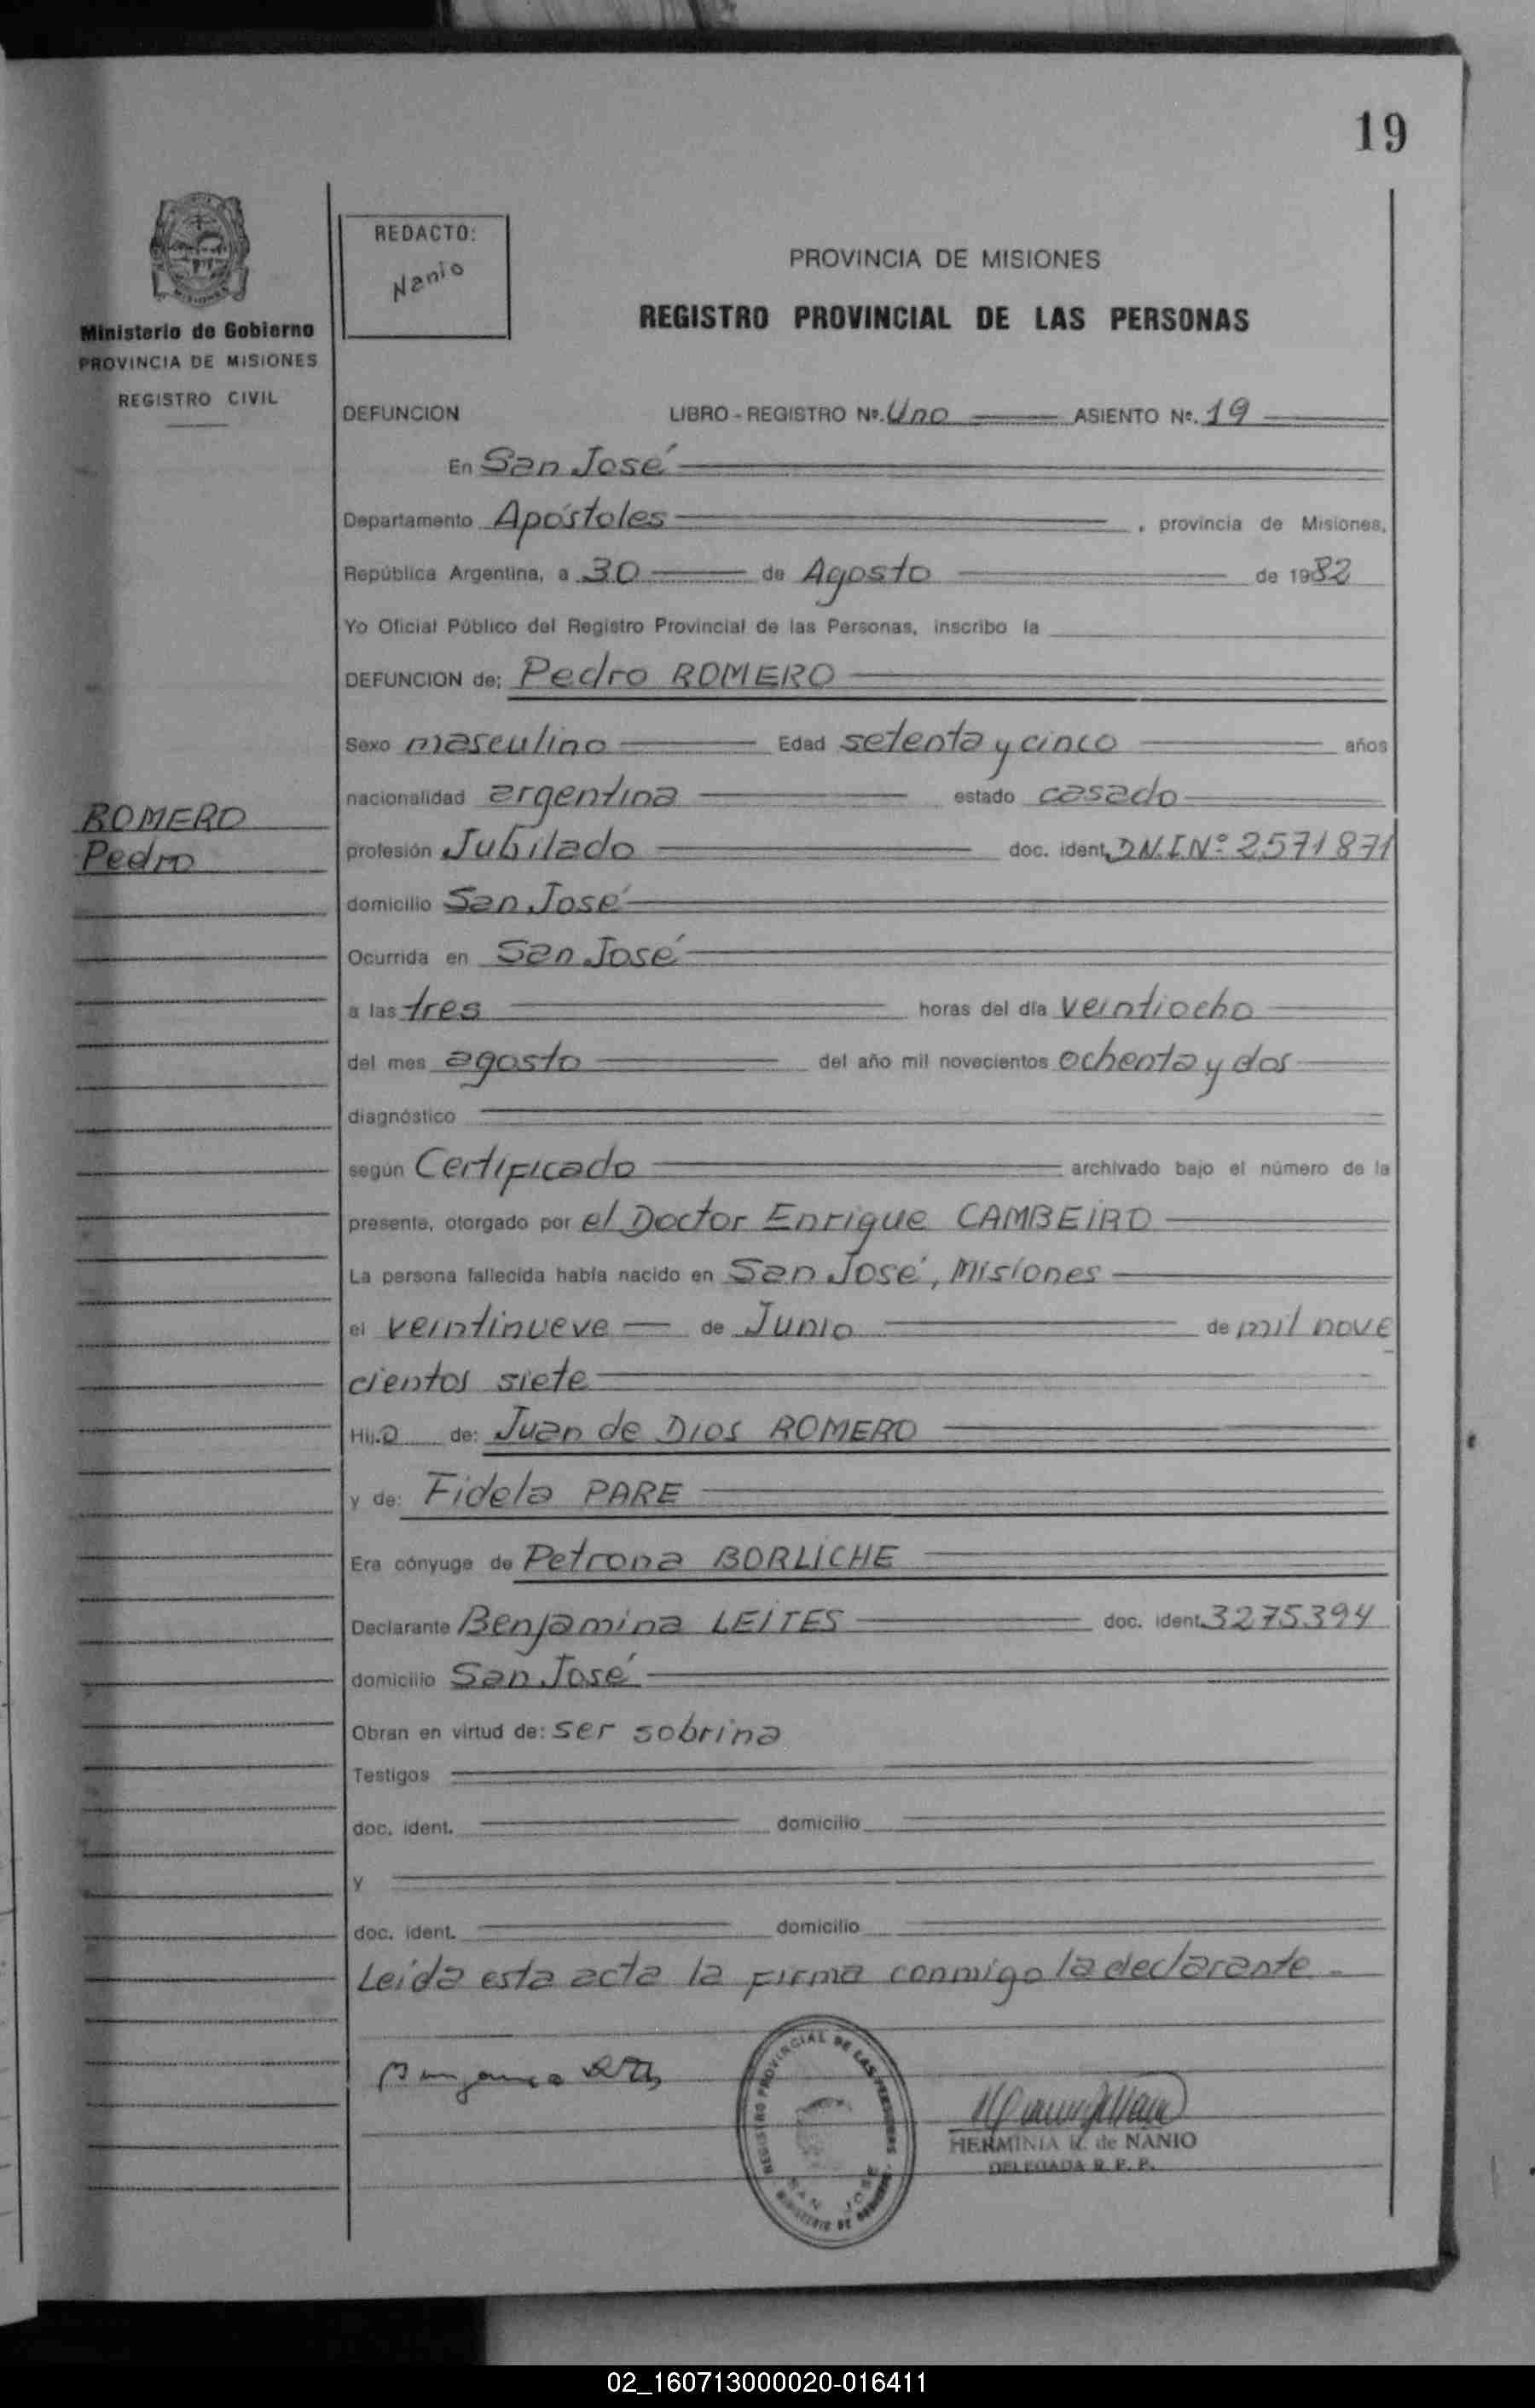 19
REDACTO:
Nanio
Ministerio de Gobierno
PROVINCIA DE MISIONES
REGISTRO CIVIL
PROVINCIA DE MISIONES
REGISTRO PROVINCIAL DE LAS PERSONAS
DEFUNCION LIBRO - REGISTRO Nº. Uno ASIENTO Nº. 19
En San José
Departamento Apóstoles, provincia de Misiones,
República Argentina, a 30 de Agosto de 1982
Yo Oficial Público del Registro Provincial de las Personas, inscribo la
DEFUNCION de: Pedro ROMERO
Sexo masculino Edad setenta y cinco años
nacionalidad argentina estado casado
ROMERO
Pedro
profesión Jubilado doc. ident. D.N.I. Nº 2571871
domicilio San José
Ocurrida en San José
a las tres horas del día veintiocho
del mes agosto del año mil novecientos ochenta y dos
diagnóstico
según Certificado archivado bajo el número de la
presente, otorgado por el Doctor Enrique CAMBEIRO
La persona fallecida había nacido en San José, Misiones
el veintinueve de Junio de mil nove
cientos siete
Hijo de: Juan de Dios ROMERO
y de: Fidela PARE
Era cónyuge de Petrona BORLICHE
Declarante Benjamina LEITES doc. ident. 3275394
domicilio San José
Obran en virtud de: ser sobrina
Testigos
doc. ident. domicilio
y
doc. ident. domicilio
Leída esta acta la firma conmigo la declarante.
REGISTRO PROVINCIAL DE LAS PERSONAS
SAN JOSE
HERMINIA K. de NANIO
DELEGADA R. P. P.
02_160713000020-016411